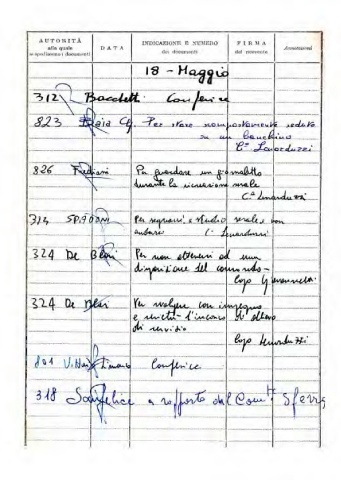 AUTORITÀ
alla quale
si spediscono i documenti
DATA
INDICAZIONE E NUMERO
dei documenti
FIRMA
del ricevente
Annotazioni
18 - Maggio
312 Bacchetti Conferire
823 Baia Per stare scompostamente seduto
su un banchino
Lenarduzzi
826 Frediani Per guardare un giornaletto
durante la ricreazione serale
Lenarduzzi
314 SPADONI Per
studio serale non
Lenarduzzi
324 De Blasi Per non attenersi ad una
disposizione del comando -
Capo
324 De Blasi Per svolgere con impegno
e l'incarico di allievo
di servizio
Capo Lenarduzzi
801 Conferire
318 Sanfelice a rapporto dal Com.te Sferra